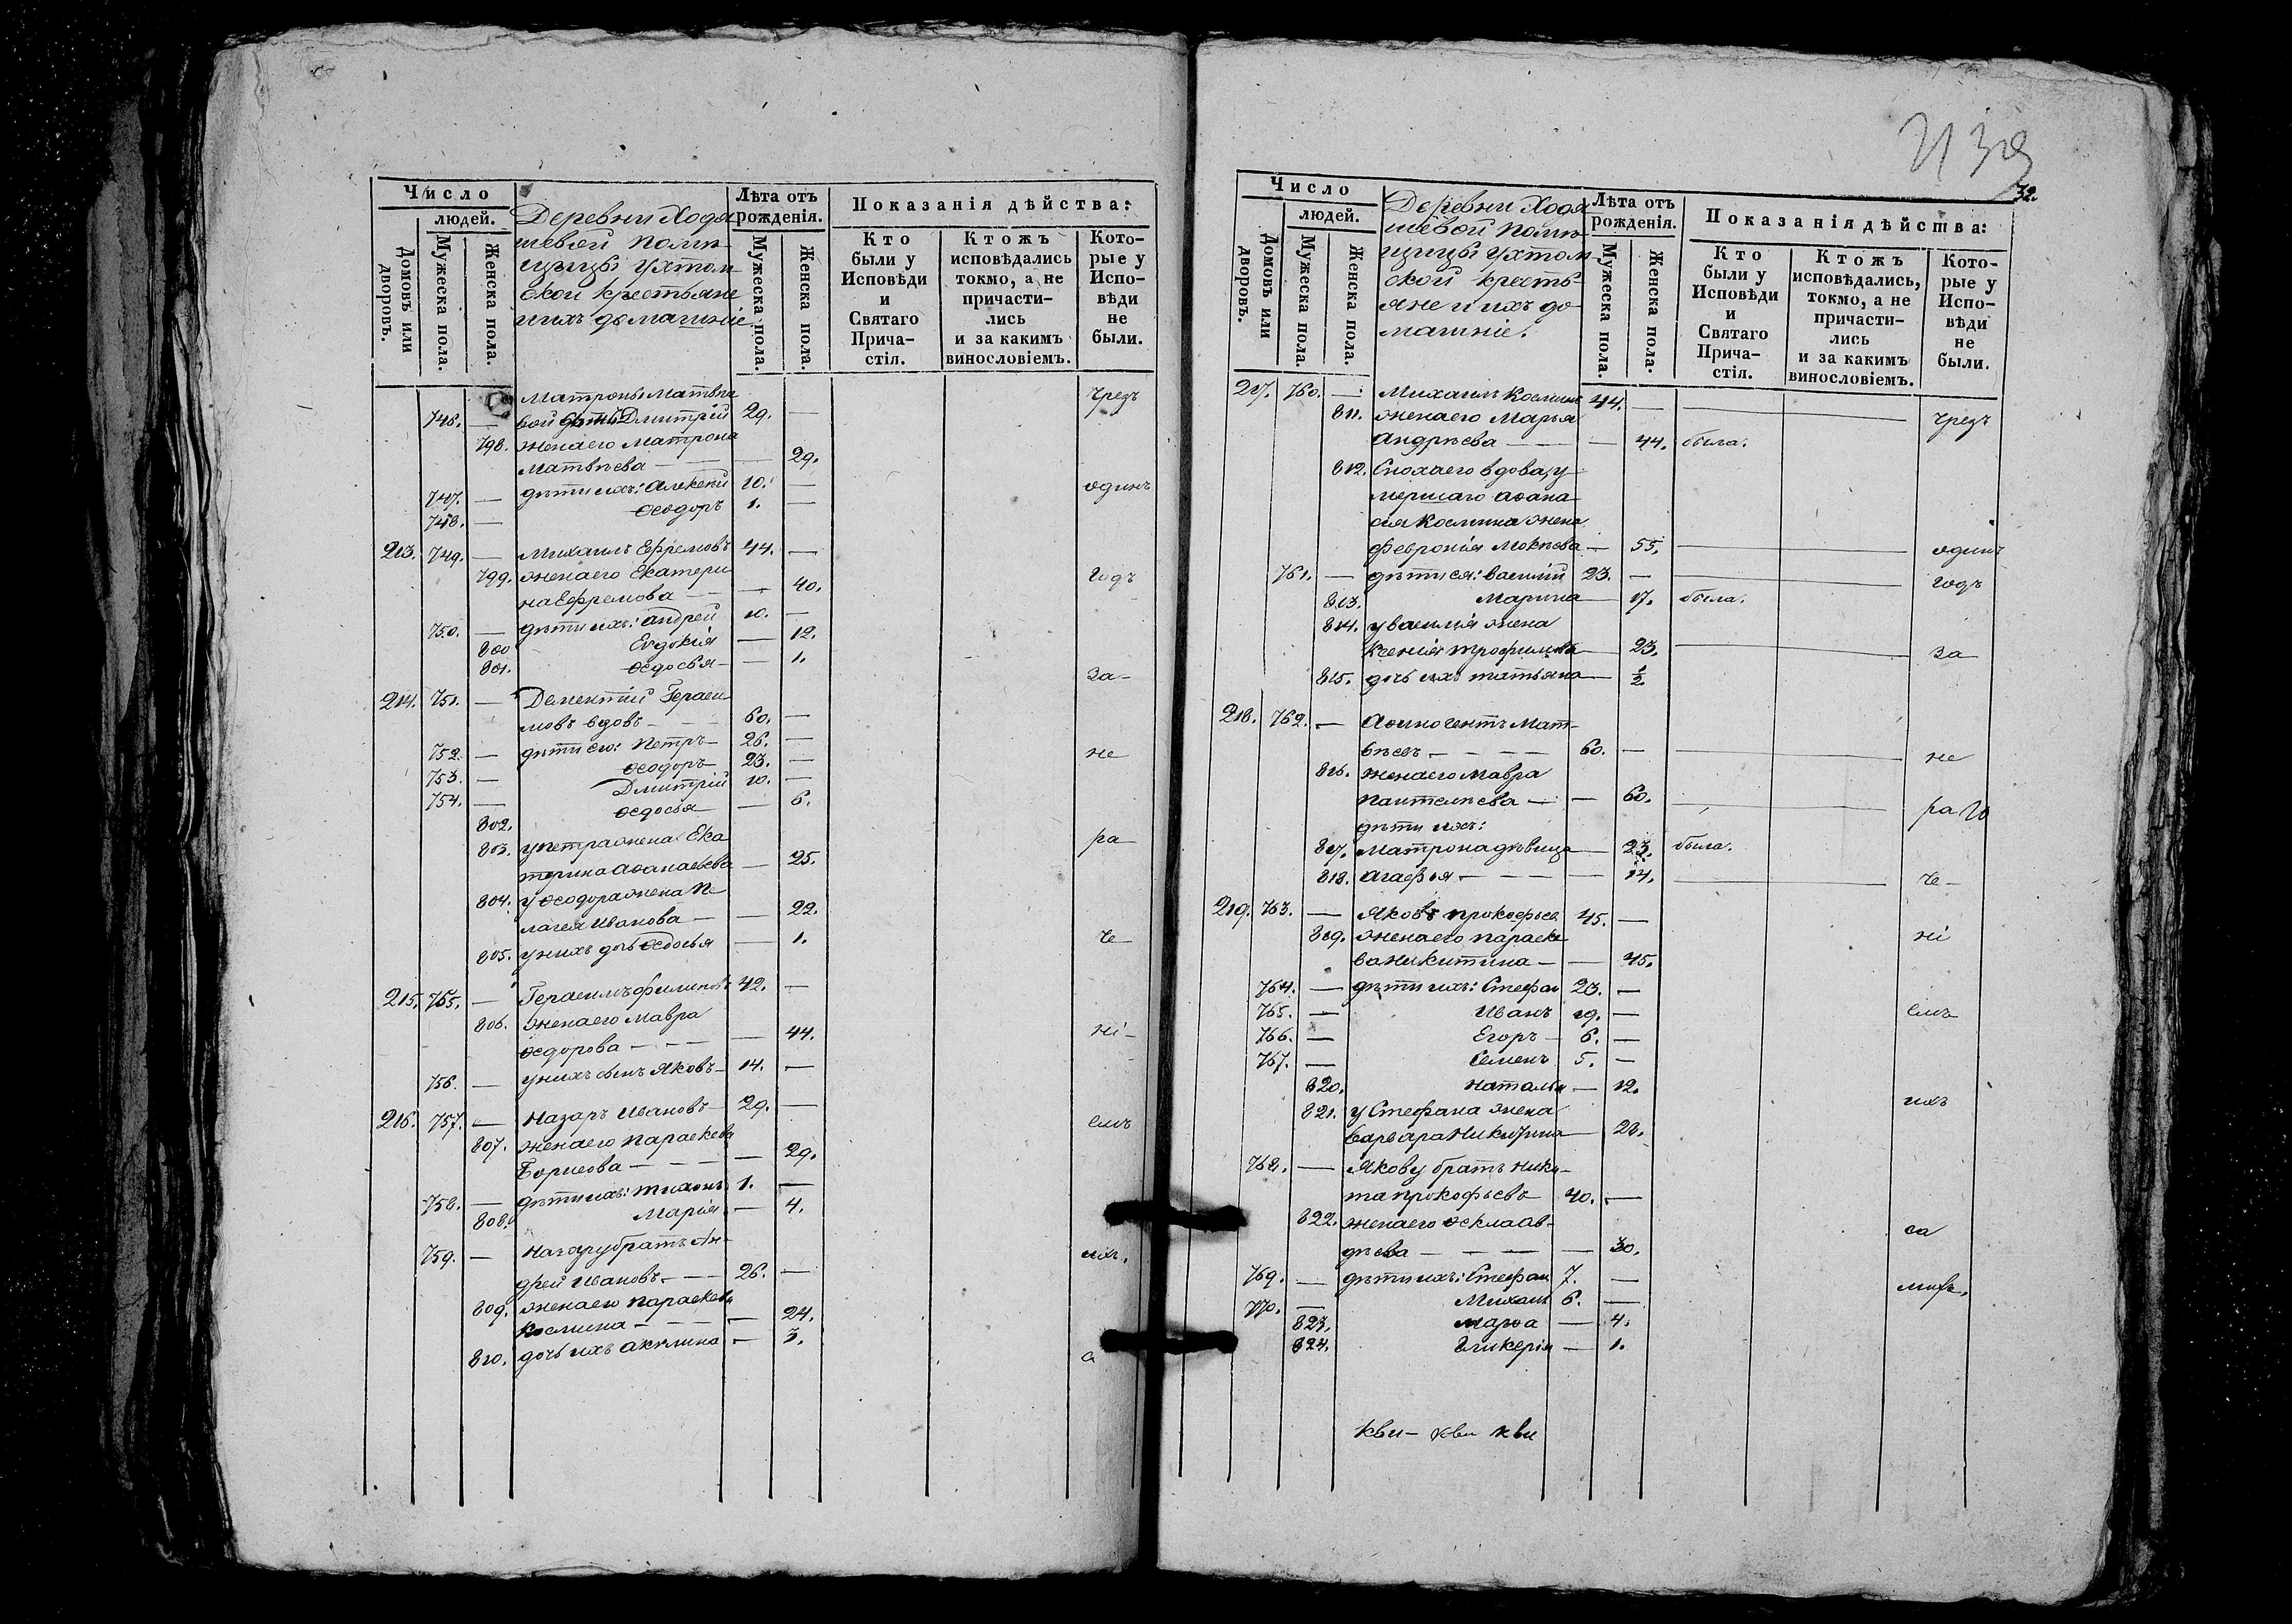 Число
людей.
Домовъ или
дворовъ.
Мужеска пола.
Женска пола.
Деревни Ходя
шевой помѣ
щицы Ухтом
ской крестьяне
и ихъ домашніе.
Лѣта отъ
рожденія.
Мужеска пола.
Женска пола.
Показанія дѣйства:
Кто
были у
Исповѣди
и
Святаго
Прича-
стія.
Ктожъ
исповѣдались
токмо, а не
причасти-
лись
и за какимъ
винословіемъ.
Кото-
рые у
Испо-
вѣди
не
были.
Матроны Матвѣе чрезъ
746. — вой Дмитрій 29. —
798. жена его Матрона
Матвѣева — — 29.
747. — дѣти ихъ: Алексѣй 10. — одинъ
748. — Ѳеодоръ 1. —
213. 749. — Михаилъ Ефремовъ 44. —
799. жена его Екатери годъ
на Ефремова — — 40.
750. — дѣти ихъ: Андрей 10. —
800 Евдокія — 12.
801. Ѳедосья — — 1.
за —
214. 751. — Дементій Гераси
мовъ вдовъ — 60. —
752. — дѣти его: Петръ — 26. — не
753. — Ѳеодоръ — 23. —
754. — Дмитрій 10. —
802. Ѳедосья — — 6.
803. у Петра жена Ека ра —
терина Аѳанасьева — 25.
804. у Ѳеодора жена Пе
лагея Иванова — — 22.
805. у нихъ дочь Ѳедосья — 1. че —
215. 755. — Герасимъ Филиповъ 42. —
806. жена его Мавра
Ѳедорова — — — 44. ні —
756. — у нихъ сынъ Яковъ — 14. —
216. 757. — Назаръ Ивановъ — 29. — емъ
807. жена его Параскева
Борисова — — — 29.
758. — дѣти ихъ: Тихонъ 1. —
808. Марія — 4.
759. — Назару братъ Ан- ихъ,
дрей Ивановъ — 26. —
809. жена его Параскева
Космина — — — 24.
810. дочь ихъ Акилина — 3. с
32.
Число
людей.
Домовъ или
дворовъ.
Мужеска пола.
Женска пола.
Деревни Ходя
шевой помѣ
щицы Ухтом
ской кресть-
яне и ихъ до
машніе.
Лѣта отъ
рожденія.
Мужеска пола.
Женска пола.
Показанія дѣйства:
Кто
были у
Исповѣди
и
Святаго
Прича-
стія.
Ктожъ
исповѣдались,
токмо, а не
причасти-
лись
и за какимъ
винословіемъ.
Кото-
рые у
Испо-
вѣди
не
были.
217. 760. — Михаилъ Косминъ 44. —
811. жена его Марья чрезъ
Андрѣева — — — 44. была.
812. Сноха его вдова, у
мершаго Аѳана
сія Космина жена
Февронія Мокѣева — 55. — одинъ
761. — дѣти ея: Василій 23. — годъ
813. Марина — 17. была.
814. у Василія жена
Ксенія Трофимова — 23. — за
815. дочь ихъ Татьяна — 1/2.
218. 762. — Аѳиногентъ Мат-
вѣевъ — — — 60. — не
816. жена его Мавра
Пантелѣева — — 60. —
дѣти ихъ:
817. Матрона дѣвица — 23. была.
818. Агафья — — — — 14. — че —
219. 763. — Яковъ Прокофьев 45. —
819. жена его Параске ні
ва Никитина — — 45.
764. — дѣти ихъ: Стефан 23. —
765. — Иванъ 19. — емъ
766. — Егоръ — 6. —
767. — Семенъ 5. —
820. Наталья — 12.
821. у Стефана жена ихъ
Варвара Никитина — 28.
768. — Якову братъ Ники-
та Прокофьевъ 40. —
822. жена его Ѳекла Ав- са
дѣева — — — — 30.
769. — дѣти ихъ: Стефан 7. —
770. — Михаил 6. —
823. Марѳа — 4.
824. Гликерія — 1.
кви — кви кви